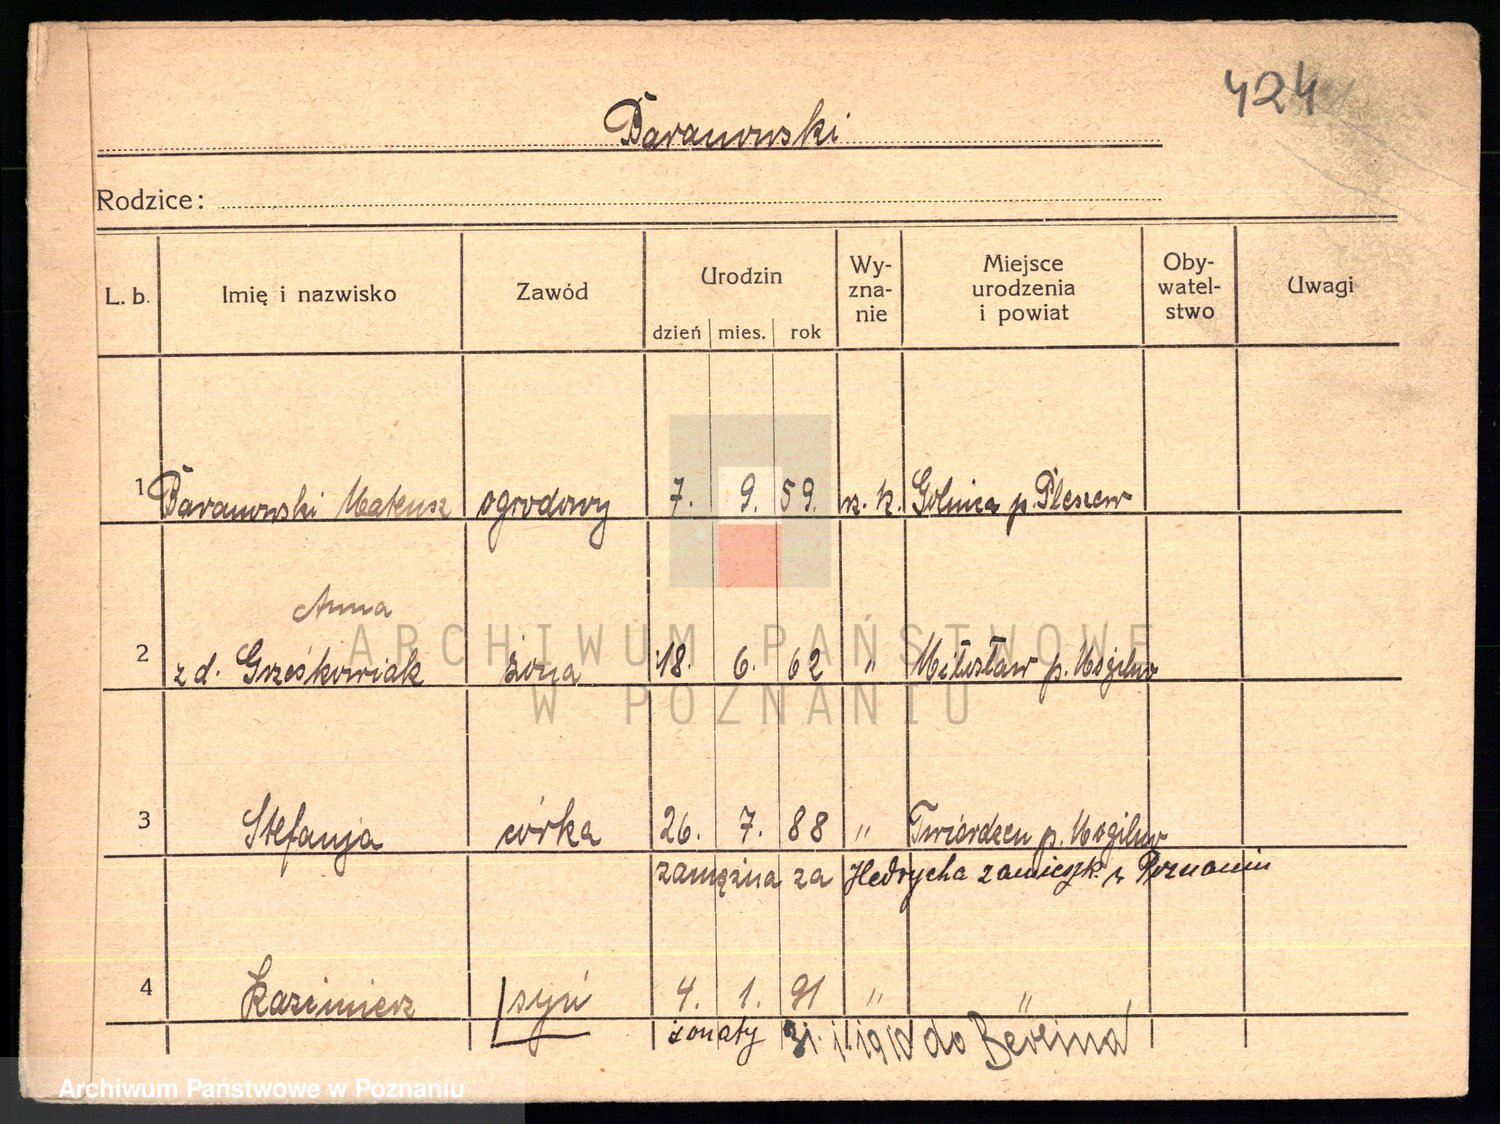 424
Baranowski
Rodzice:
L. b. Imię i nazwisko Zawód Urodzin Wy-zna-nie Miejsce urodzenia i powiat Oby-watel-stwo Uwagi
dzień mies. rok
1 Baranowski Mateusz ogrodowy 7. 9. 59. rz. k. Golnica p. Pleszew
Anna
2 z d. Grześkowiak żona 18. 6. 62 " Miłosław p.
3 Stefanja córka 26. 7. 88 " Twierdzeń p. Mogilno
zamężna za Hedrycha zamieszk. w Poznaniu
4 Kazimierz syn 4. 1. 91 " "
żonaty do Berlina
ARCHIWUM PAŃSTWOWE
W POZNANIU
Archiwum Państwowe w Poznaniu